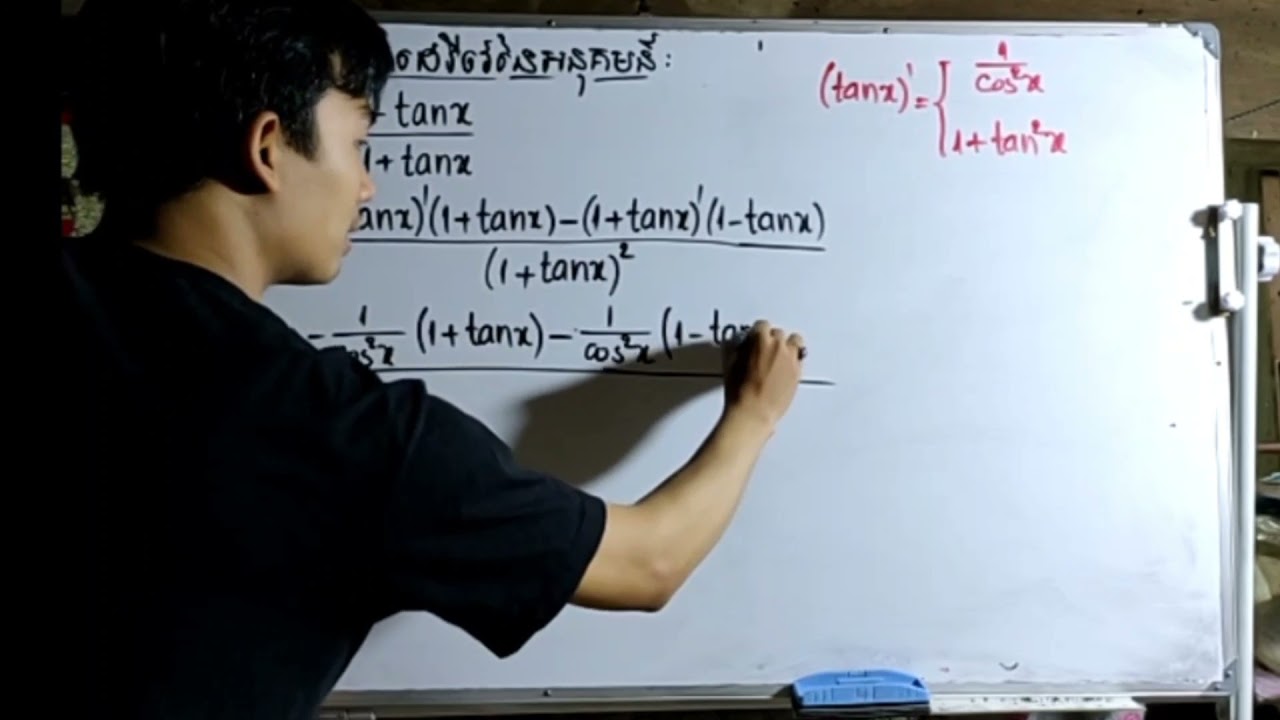 ដេរីវេនៃអនុគមន៍:
- tanx
1 + tanx
anx)'(1+tanx)-(1+tanx)'(1-tanx)
(1+tanx)²
- 1/cos²x (1+tanx) - 1/cos²x (1-tan
(tanx)' = { 1/cos²x
1+tan²x